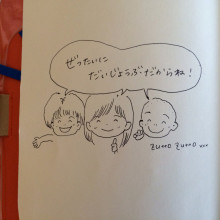 ぜったいに
だいじょうぶだからね！